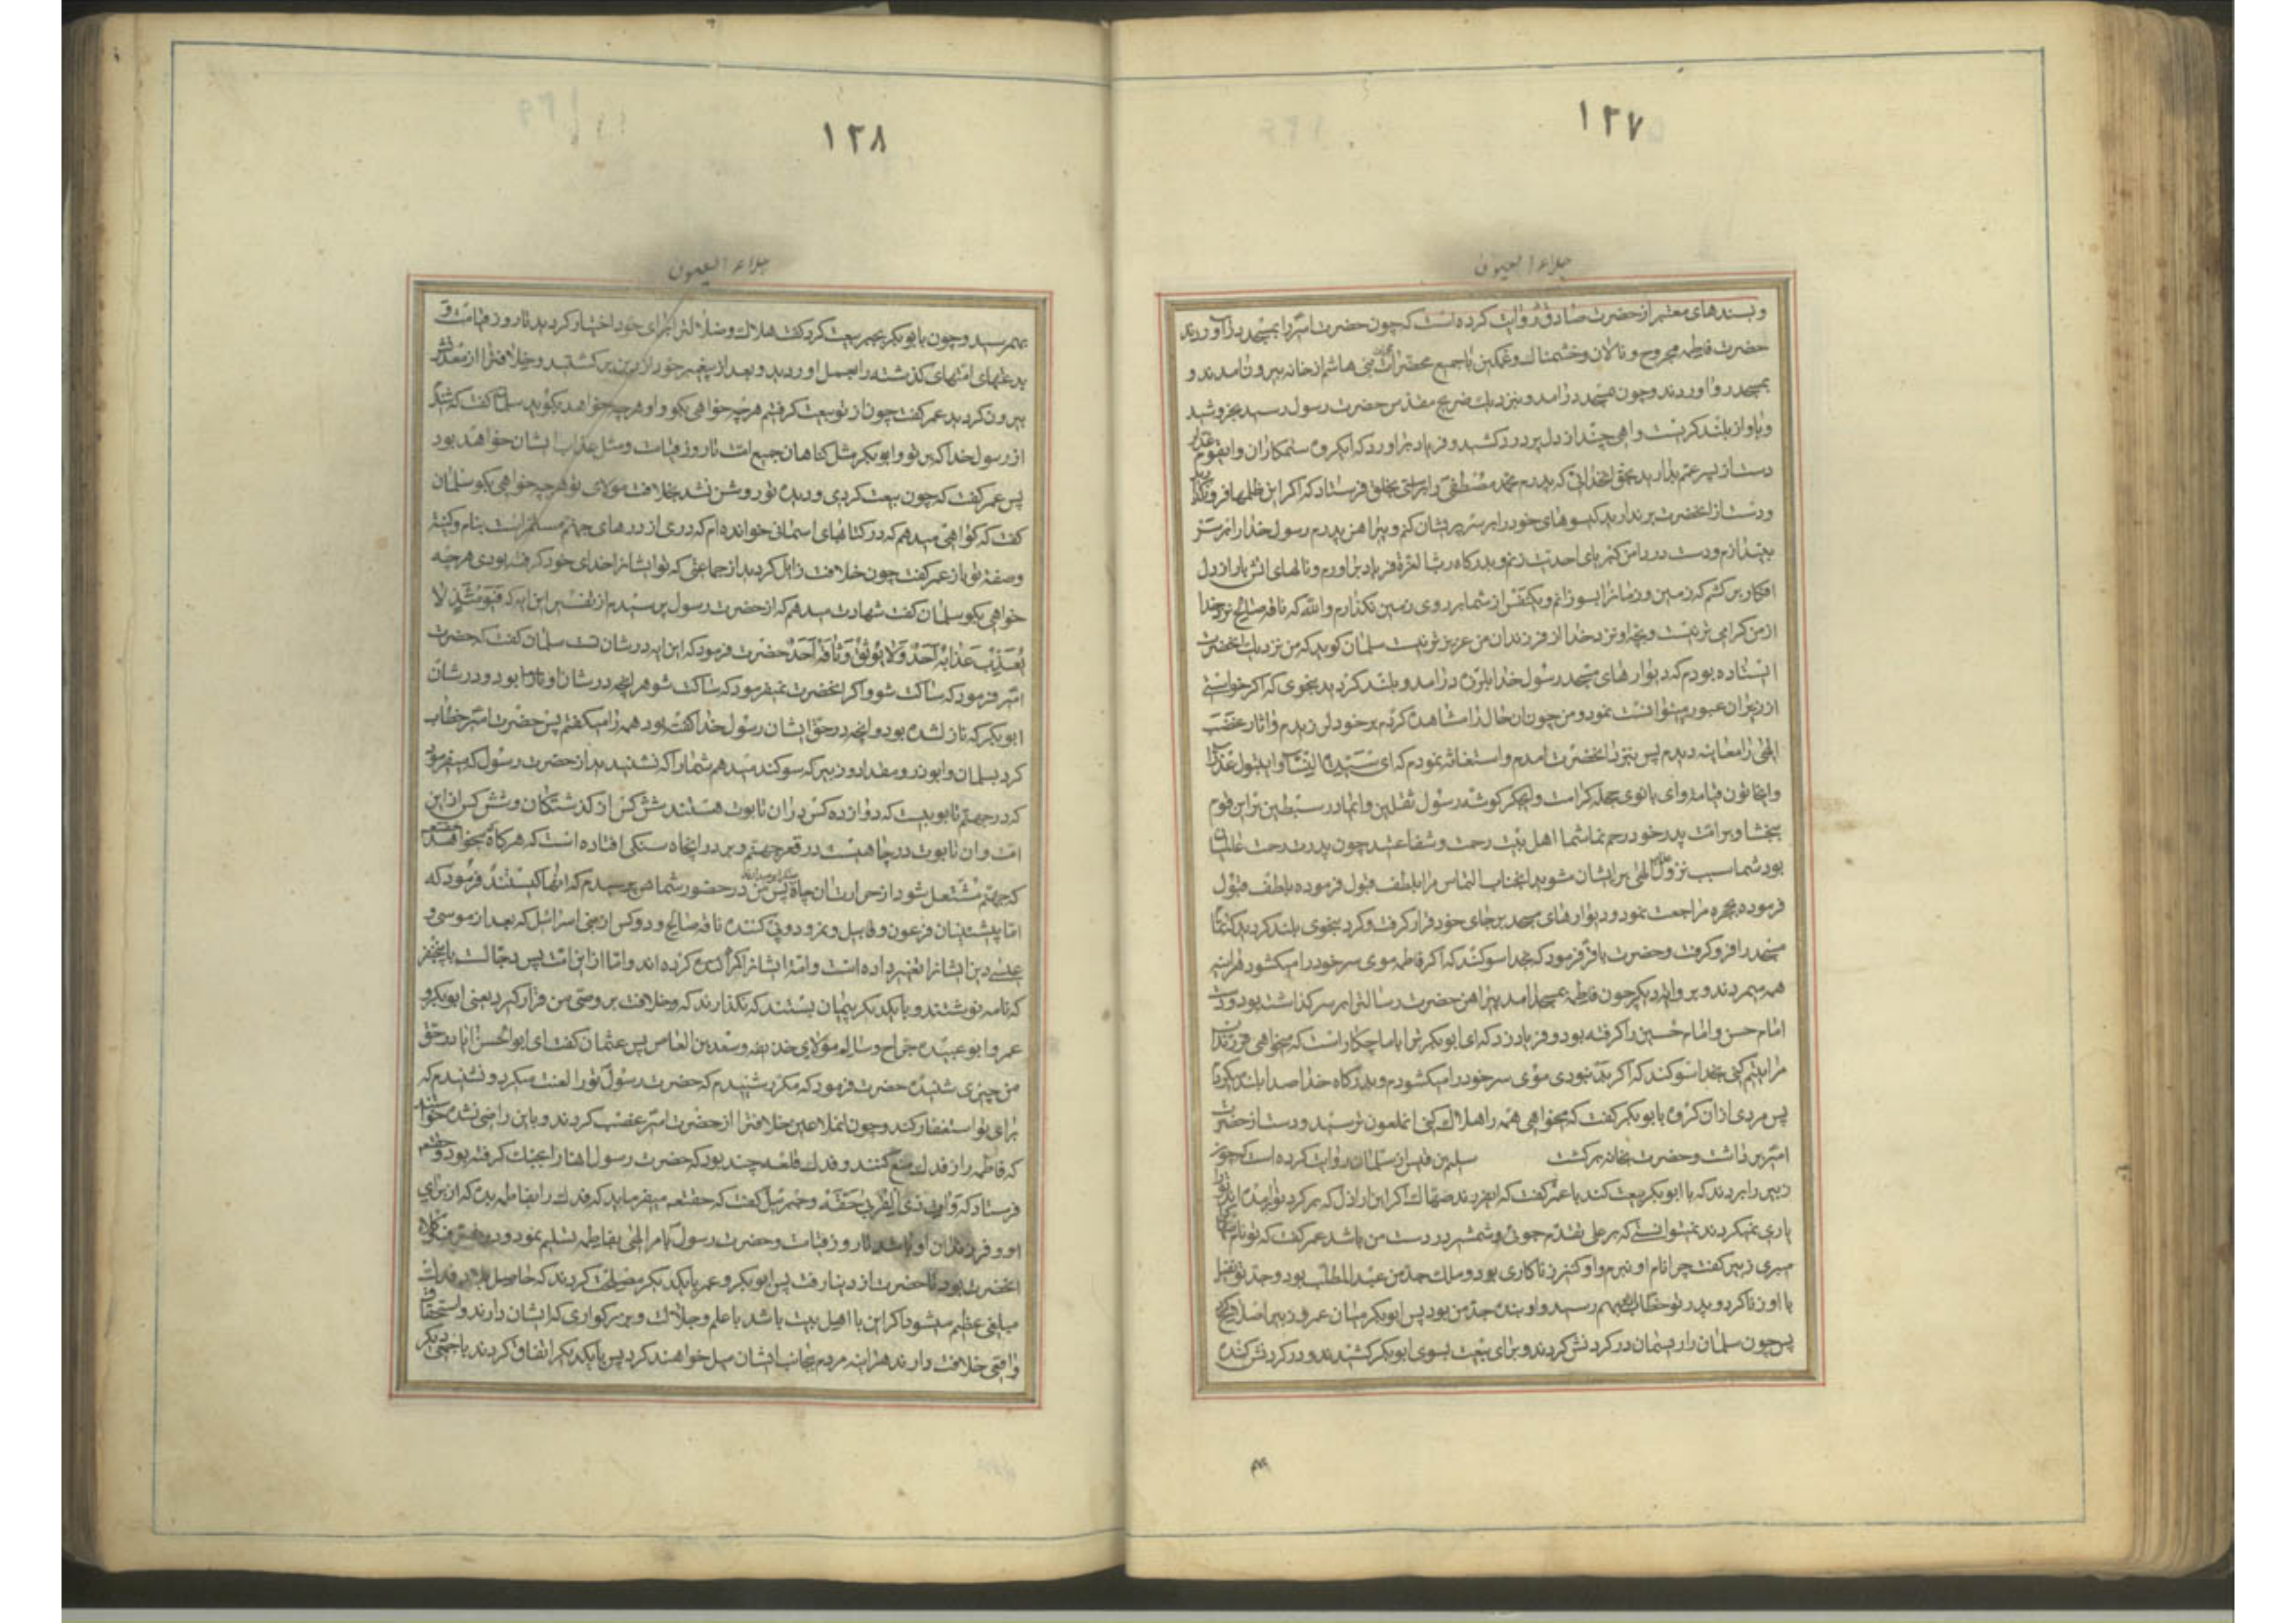 ١٢٧
جلاء العیون
و بسندهای معتبر از حضرت صادق روایت کرده است که چون حضرت امیر را بمسجد در آوردند
حضرت فاطمه مجروح و نالان و خشمناک و غمگین با جمیع مخدرات بنی هاشم از خانه بیرون آمدند و
بمسجد رو آوردند و چون بمسجد در آمد و بنزدیک ضریح مقدس حضرت رسول رسید بخروشید
و باواز بلند گریست و آهی چند از دل پر درد کشید و فریاد برآورد که ایگروه ستمکاران و ایقوم غدار
دست از پسر عم بدارید بحق خدائی که پدرم محمد مصطفی را براستی بخلق فرستاد که اگر این ظلمها فرو نگذارید
و دست از آنحضرت برندارید گیسوهای خود را بر سر پریشان کنم و پیراهن پدرم رسول خدا را بر سر
بیندازم و دست در دامن کبریای احدیت زنم و بدرگاه رب العزة فریاد برآورم و نالهای آتش بار از دل
افکار برکشم که زمین و زمانرا بسوزانم و یکنفس از شما بر روی زمین نگذارم والله که ناقه صالح نزد خدا
از من گرامی تر نیست و بچه او نزد خدا از فرزندان من عزیزتر نیست سلمان گوید که من نزدیک آنحضرت
ایستاده بودم که دیوارهای مسجد رسول خدا بلرزه در آمد و بلند گردید بنحوی که اگر خواستی
از زیر آن عبور میتوانست نمود و من چون آن حال را مشاهده کردم بر خود لرزیدم و آثار غضب
الهی را معاینه دیدم پس بنزد آنحضرت آمدم و استغاثه نمودم که ای سیدة النساء و ای بتول عذرا
و ای خاتون قیامت و ای بانوی حجله کرامت و ای جگر گوشه رسول ثقلین و ای مادر سبطین بر این قوم
ببخشا و بر امت پدر خود رحم نما شما اهل بیت رحمت و شفاعتید چون پدرت رحمت عالمیان
بود شما سبب نزول عذاب الهی بر ایشان مشوید آنجناب التماس مرا بلطف قبول فرموده
فرموده بحجره مراجعت نمود و دیوارهای مسجد بر جای خود قرار گرفت و گرد بنحوی بلند گردید که تمام
مسجد را فرو گرفت و حضرت باقر فرمود که بخدا سوگند که اگر فاطمه موی سر خود را میگشود هر آینه
همه میمردند و بروایت دیگر چون فاطمه بمسجد آمد پیراهن حضرت رسالت را بر سر گذاشته بود و دست
امام حسن و امام حسین را گرفته بود و فریاد زد که ای ابوبکر ترا با ما چکار است که میخواهی فرزندان
مرا یتیم کنی بخدا سوگند که اگر بد نبودی موی سر خود را میگشودم و بدرگاه خدا صدا بلند میکردم
پس مردی از آن گروه با ابوبکر گفت که میخواهی همه را هلاک کنی آنملعون ترسید و دست از حضرت
امیر برداشت و حضرت بخانه برگشت سلیم بن قیس از سلمان روایت کرده است که چون
زبیر را بردند که با ابوبکر بیعت کند با عمر گفت که ای فرزند صهاک اگر این اراذل که بر گرد تو آمده اند ترا
یاری نمیکردند نمیتوانستی که بر علی تقدم جوئی و شمشیر در دست من باشد عمر گفت که تو نام صهاک
میبری زبیر گفت چرا نام او نبرم و او کنیز زناکاری بود و ملک جد من عبدالمطلب بود و جد تو نفیل
با او زنا کرد و پدر تو خطاب بهم رسید و او بنده جد من بود پس ابوبکر میان عمر و زبیر اصلاح کرد
پس چون سلمان را ریسمان در گردنش کردند و برای بیعت بسوی ابوبکر کشیدند و در گردنش کنده
١٢٨
جلاء العیون
بهم رسید و چون با ابوبکر بجبر بیعت کرد گفت هلاک و ضلالت را برای خود اختیار کردید تا روز قیامت و
بدعتهای امتهای گذشته را بعمل آوردید و بعد از پیغمبر خود از دین برگشتید و خلافت را از معدنش
بیرون کردید عمر گفت چون از تو بیعت گرفتم هر چه خواهی بگو و او هر چه خواهد بگوید سلمان گفت که شنیدم
از رسول خدا که بر تو و ابوبکر مثل گناهان جمیع امت تا روز قیامت و مثل عذاب ایشان خواهد بود
پس عمر گفت که چون بیعت کردی و دیده تو روشن نشد بخلافت مولای تو هر چه خواهی بگو سلمان
گفت که گواهی میدهم که در کتابهای آسمانی خوانده ام که دری از درهای جهنم مسمی است بنام و کنیه
و صفت تو باز عمر گفت چون خلافت زایل گردید از جماعتی که تو ایشانرا خدای خود گرفته بودی هر چه
خواهی بگو سلمان گفت شهادت میدهم که از حضرت رسول پرسیدم از تفسیر این آیه که فیومئذ لا
یعذب عذابه احد ولا یوثق وثاقه احد حضرت فرمود که این آیه در شان تست سلمان گفت که حضرت
امیر فرمود که ساکت شو و اگر آنحضرت نمیفرمود که ساکت شو هر آنچه در شان او نازل شده بود و در شان
ابوبکر که نازل شده بود و آنچه در حق ایشان رسول خدا گفته بود همه را میگفتم پس حضرت امیر خطاب
کرد بسلمان و ابوذر و مقداد و زبیر که سوگند میدهم شما را که نشنیدید از حضرت رسول که میفرمود
که در جهنم تابوتیست که دوازده کس در آن تابوت هستند شش کس از گذشتگان و شش کس از این
امت و آن تابوت در چاهیست در قعر جهنم و بر در آنچاه سنگی افتاده است که هر گاه میخواهند
که جهنم مشتعل شود از حرارت آن چاه پس من در حضور شما پرسیدم که آنها کیستند فرمود که
اما پیشینیان فرعون و قابیل و نمرود و پی کننده ناقه صالح و دو کس از بنی اسرائیل که بعد از موسی و
عیسی دین ایشانرا تغییر داده است و امت ایشانرا گمراه کرده اند و اما از این امت پس دجال است با پنج نفر
که نامه نوشتند و با یکدیگر پیمان بستند که نگذارند که خلافت بر وصی من قرار گیرد یعنی ابوبکر و
عمر و ابو عبیده جراح و سالم مولای حذیفه و سعد بن العاص پس عثمان گفت ای ابوالحسن آیا در حق
من چیزی شنیده حضرت فرمود که مکرر شنیدم که حضرت رسول تو را لعنت میکرد و نشنیدم که
برای تو استغفار کند و چون آنملاعین خلافت را از حضرت امیر غصب کردند و باین راضی نشده خواستند
که فاطمه را از فدک منع کنند و فدک قلعه چند بود که حضرت رسول آنها را بجنگ گرفته بود و حقتعالی
فرستاد که وآت ذی القربی حقه و جبرئیل گفت که حقتعالی میفرماید که فدک را بفاطمه بده که از برای
او و فرزندان او باشد تا روز قیامت و حضرت رسول بامر الهی بفاطمه تسلیم نمود و در تصرف وکلاء
آنحضرت بود تا حضرت از دنیا رفت پس ابوبکر و عمر با یکدیگر مصلحت کردند که حاصل فدک
مبلغی عظیم میشود اگر این با اهل بیت باشد با علم و جلالت و بزرگواری که ایشان دارند و استحقاق
واقعی خلافت دارند هر آینه مردم بجانب ایشان میل خواهند کرد پس با یکدیگر اتفاق کردند با جمعی دیگر